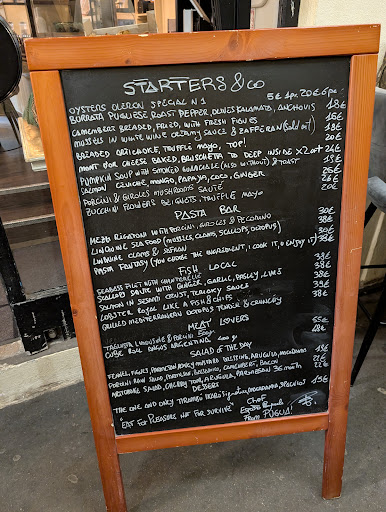 STARTERS & CO
OYSTERS OLERON SPECIAL N1 5€ 1pc 20€ 6pc
BURRATA PUGLIESE ROAST PEPPER, OLIVES KALAMATA, ANCHOVIS 18€
CAMEMBERT BREADED, FRIED, WITH FRESH FIGUES 16€
MUSSELS IN WHITE WINE CREAMY SAUCE & ZAFFERAN (sold out) 18€
BREADED ARTICHOKE, TRUFFLE MAYO, TOP!
MONT D'OR CHEESE BAKED, BRUSCHETTA TO DEEP INSIDE X2 24€
PUMPKIN SOUP WITH SMOKED (ALSO WITHOUT) & TOAST
SALMON CEVICHE, MANGO, PAPAYA, COCO, GINGER
PORCINI & GIROLES MUSHROOMS SAUTÉ 26€
ZUCCHINI FLOWERS BEIGNETS, TRUFFLE MAYO 20€
PASTA BAR
MEZZI RIGATONI WITH PORCINI, GIROLES & PECORINO 30€
LINGUINE SEA FOOD (MUSSELS, CLAMS, SCALLOPS, OCTOPUS) 38€
LINGUINE CLAMS & SAFRAN
PASTA FANTASY (YOU CHOOSE THE INGREDIENT, I COOK IT, & ENJOY IT) 38€
FISH LOCAL
SEABASS FILET WITH CHANTERELLE
SCALLOPS PASTIS WITH GINGER, GARLIC, PARSLEY, LIMES 38€
SALMON IN SESAME CRUST, TERIAKY SAUCE
LOBSTER ROYAL LIKE A FISH & CHIPS
GRILLED MEDITERRANEAN OCTOPUS TENDER & CRUNCHY 38€
MEAT LOVERS
TAGLIATA & PORCINI 500gr 55€
CUBE ROLL ANGUS ARGENTINA 400 g
SALAD OF THE DAY
FENNEL, FIGUES, MUSTARD DRESSING, ARUGULA, 18€
PORCINI RAW SALAD, PARMESAN, 22€
ARTICHOKE SALAD, CHERRY TOM, ARUGULA, PARMESAN 36 month 22€
DESSERT
THE ONE AND ONLY TIRAMISU 15€
"EAT FOR PLEASURE NOT FOR SURVIVE" CHEF
FROM PUGLIA!